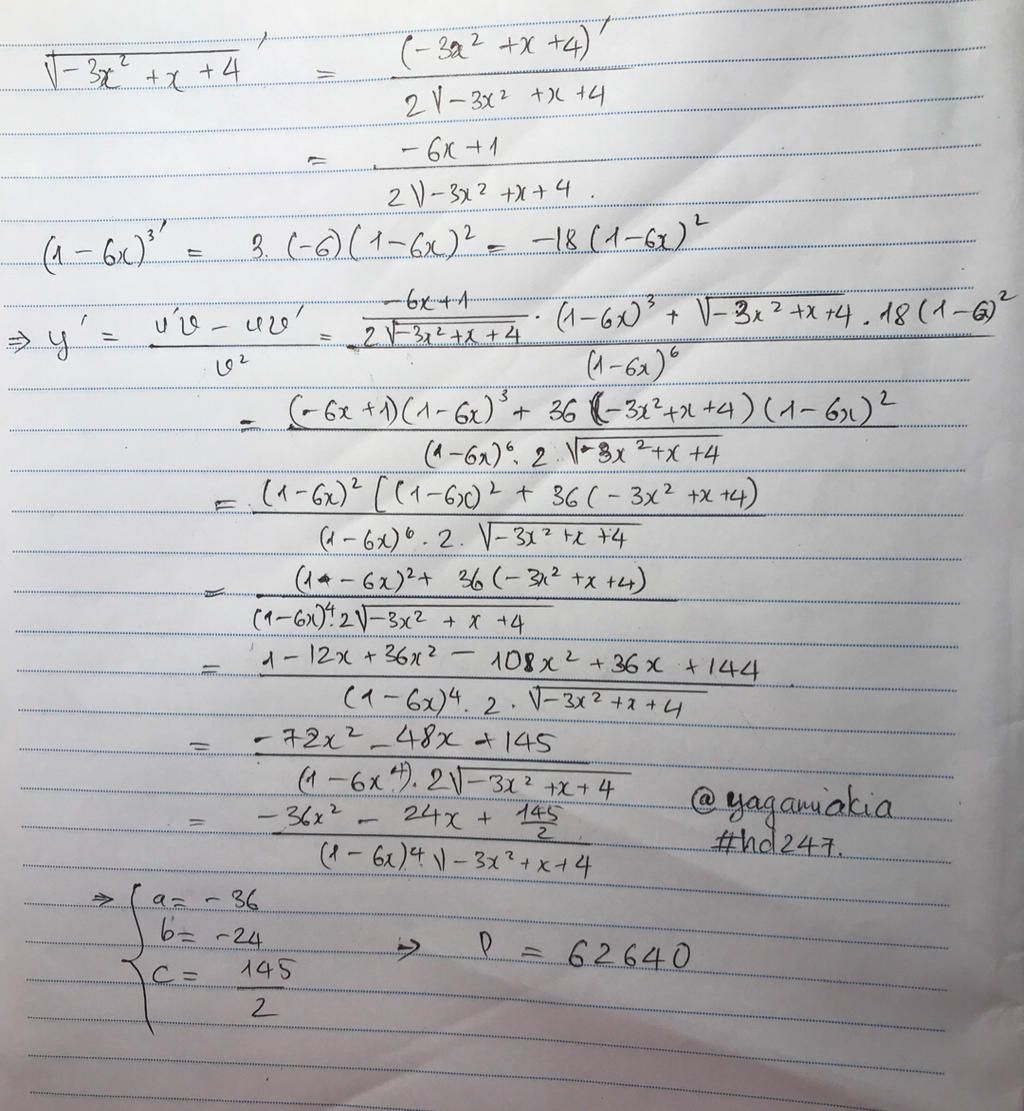 √(-3x² + x + 4)′ = (-3x² + x + 4)′ / 2√(-3x² + x + 4)
= (-6x + 1) / 2√(-3x² + x + 4) .
(1 - 6x)³′ = 3. (-6)(1 - 6x)² = -18(1 - 6x)²
⇒ y′ = (u′v - uv′) / v² = ((-6x + 1) / 2√(-3x² + x + 4) · (1 - 6x)³ + √(-3x² + x + 4) . 18(1 - 6)²) / (1 - 6x)⁶
= ((-6x + 1)(1 - 6x)³ + 36(-3x² + x + 4)(1 - 6x)²) / ((1 - 6x)⁶. 2 √(-3x² + x + 4))
= (1 - 6x)² [(1 - 6x)² + 36(-3x² + x + 4) / ((1 - 6x)⁶ . 2. √(-3x² + x + 4))
= ((1 - 6x)² + 36(-3x² + x + 4)) / ((1 - 6x)⁴. 2√(-3x² + x + 4))
= (1 - 12x + 36x² - 108x² + 36x + 144) / ((1 - 6x)⁴. 2 . √(-3x² + x + 4))
= (-72x² - 48x + 145) / ((1 - 6x⁴). 2√(-3x² + x + 4))
= (-36x² - 24x + 145/2) / ((1 - 6x)⁴. √(-3x² + x + 4))
@yagamiakia
#hd247.
⇒ { a = -36
b = -24 ⇒ P = 62640
c = 145/2